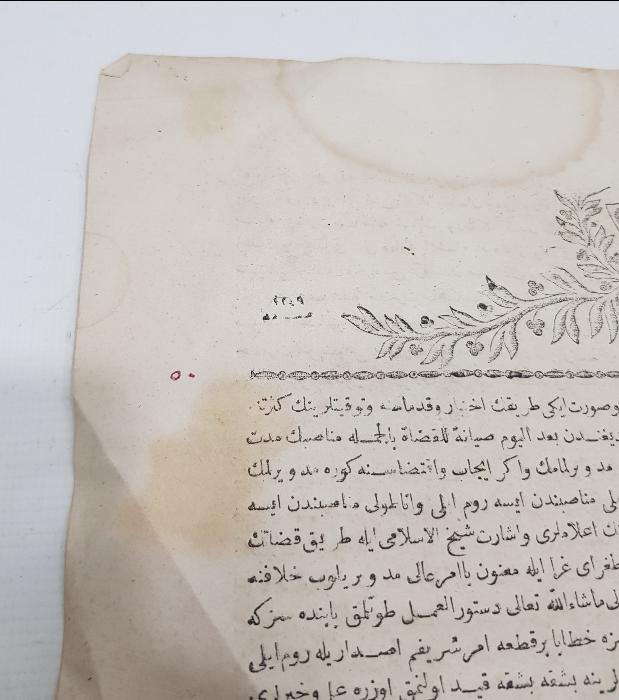 وصورت ایکی طریقك اختیار وقدماسنه وتوقیتلرینك کثرتنه
بعد الیوم صیانة للقضاة بالجمله مناصبك مدت
مد ویرلمامك واکر ایجاب واقتضاسنه کوره مد ویرلمك
مناصبندن ایسه روم ایلی واناطولی مناصبندن ایسه
اعلاملری واشارت شیخ الاسلامی ایله طریق قضاتك
غرا ایله معنون باامر عالی مد ویریلوب خلافنه
ماشاءالله تعالی دستور العمل طوتلمق بابنده سزکه
خطابا برقطعه امر شریفم اصداریله روم ایلی
بشقه بشقه قید اولنمق اوزره علم وخبرلری